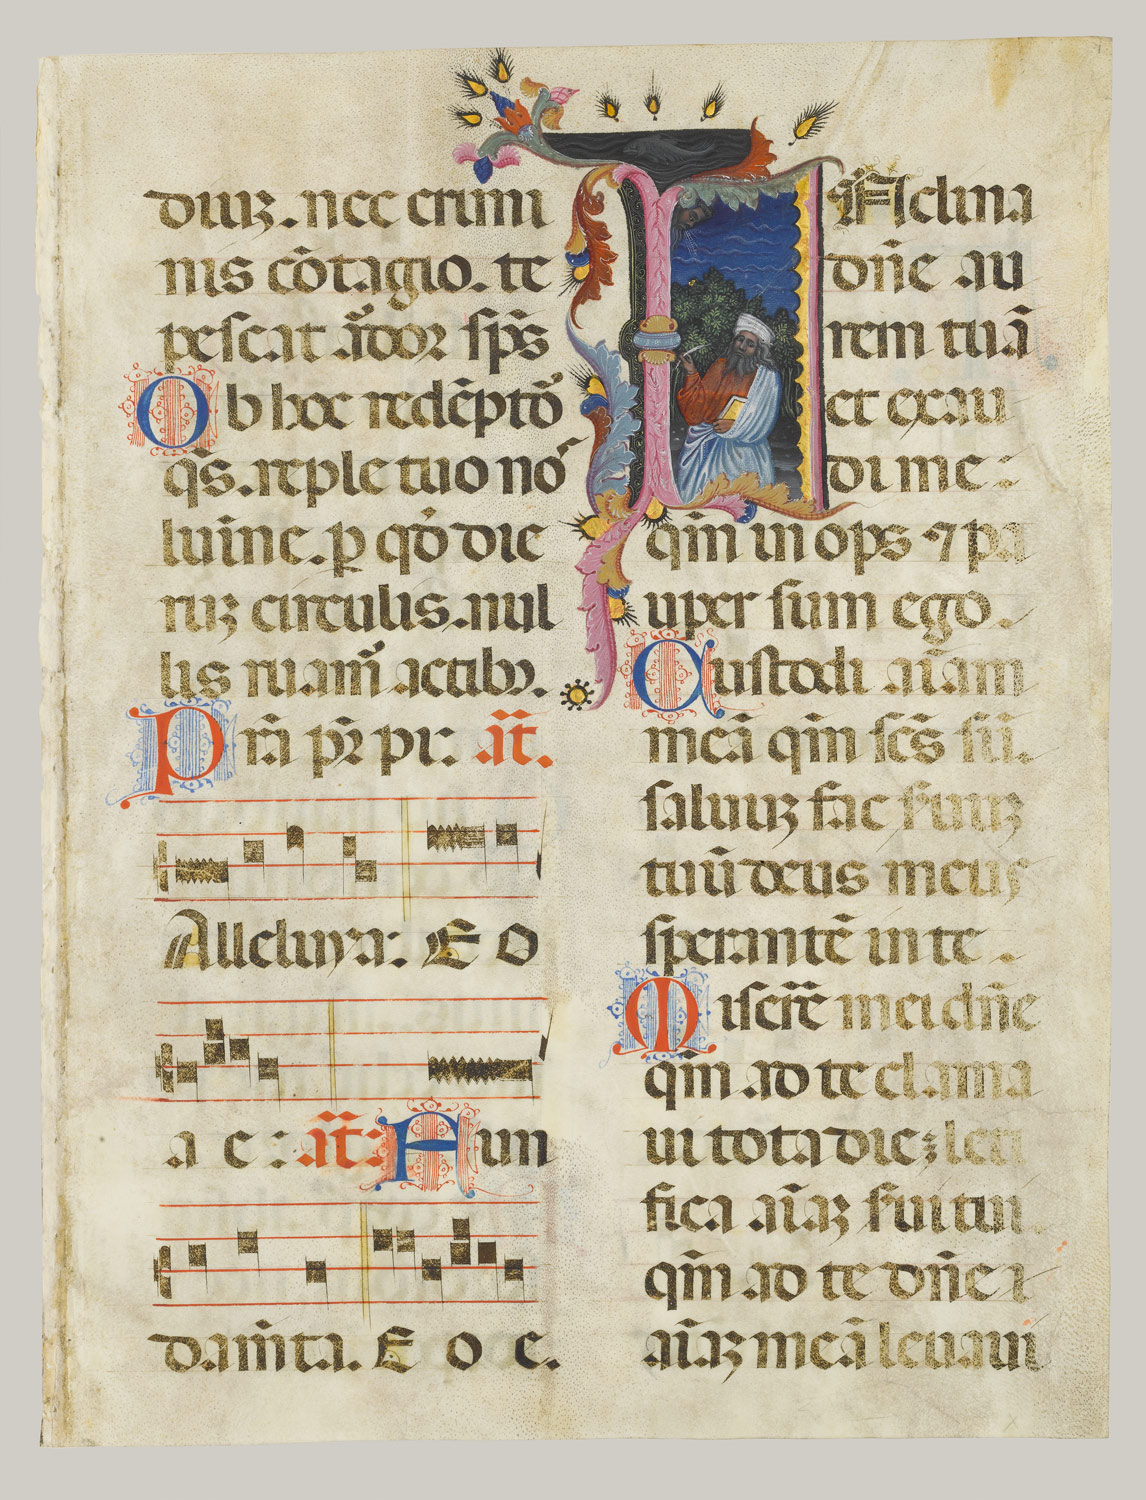 diuiꝫ. nec crimi
nis cōtagio. te
pescat ārdor sp̄s
Ob hoc redēptō
q̄s. reple tuo no
lumīne. ꝑ q̄ō die
ruꝫ circulis. nul
lis ruam̄ actibꝫ.
Prā pr̄ pi: a͞t.
Alleluya: E o
a e: a͞t: Fun
dam̄ta. E o e.
INclina
dn̄e au
rem tuā
et exau
di me:
qm̄ inops ⁊ pa
uper sum ego.
Custodi aīam
meā qm̄ sc̄s su͞.
saluuꝫ fac s̄uuꝫ
tuū deus meus
sperantē in te.
Miser̄e mei dn̄e
qm̄ ad te clama
ui tota die: leti
fica aīaꝫ s̄ui tui
qm̄ ad te dn̄e
aīaꝫ meā leuaui